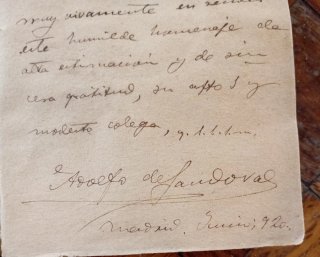 muy vivamente en
este humilde homenaje de la
alta estimación y de sin
cera gratitud, su affo s y
modesto colega, q.l.b.l.m.,
Adolfo de Sandoval
Madrid, Junio, 920.